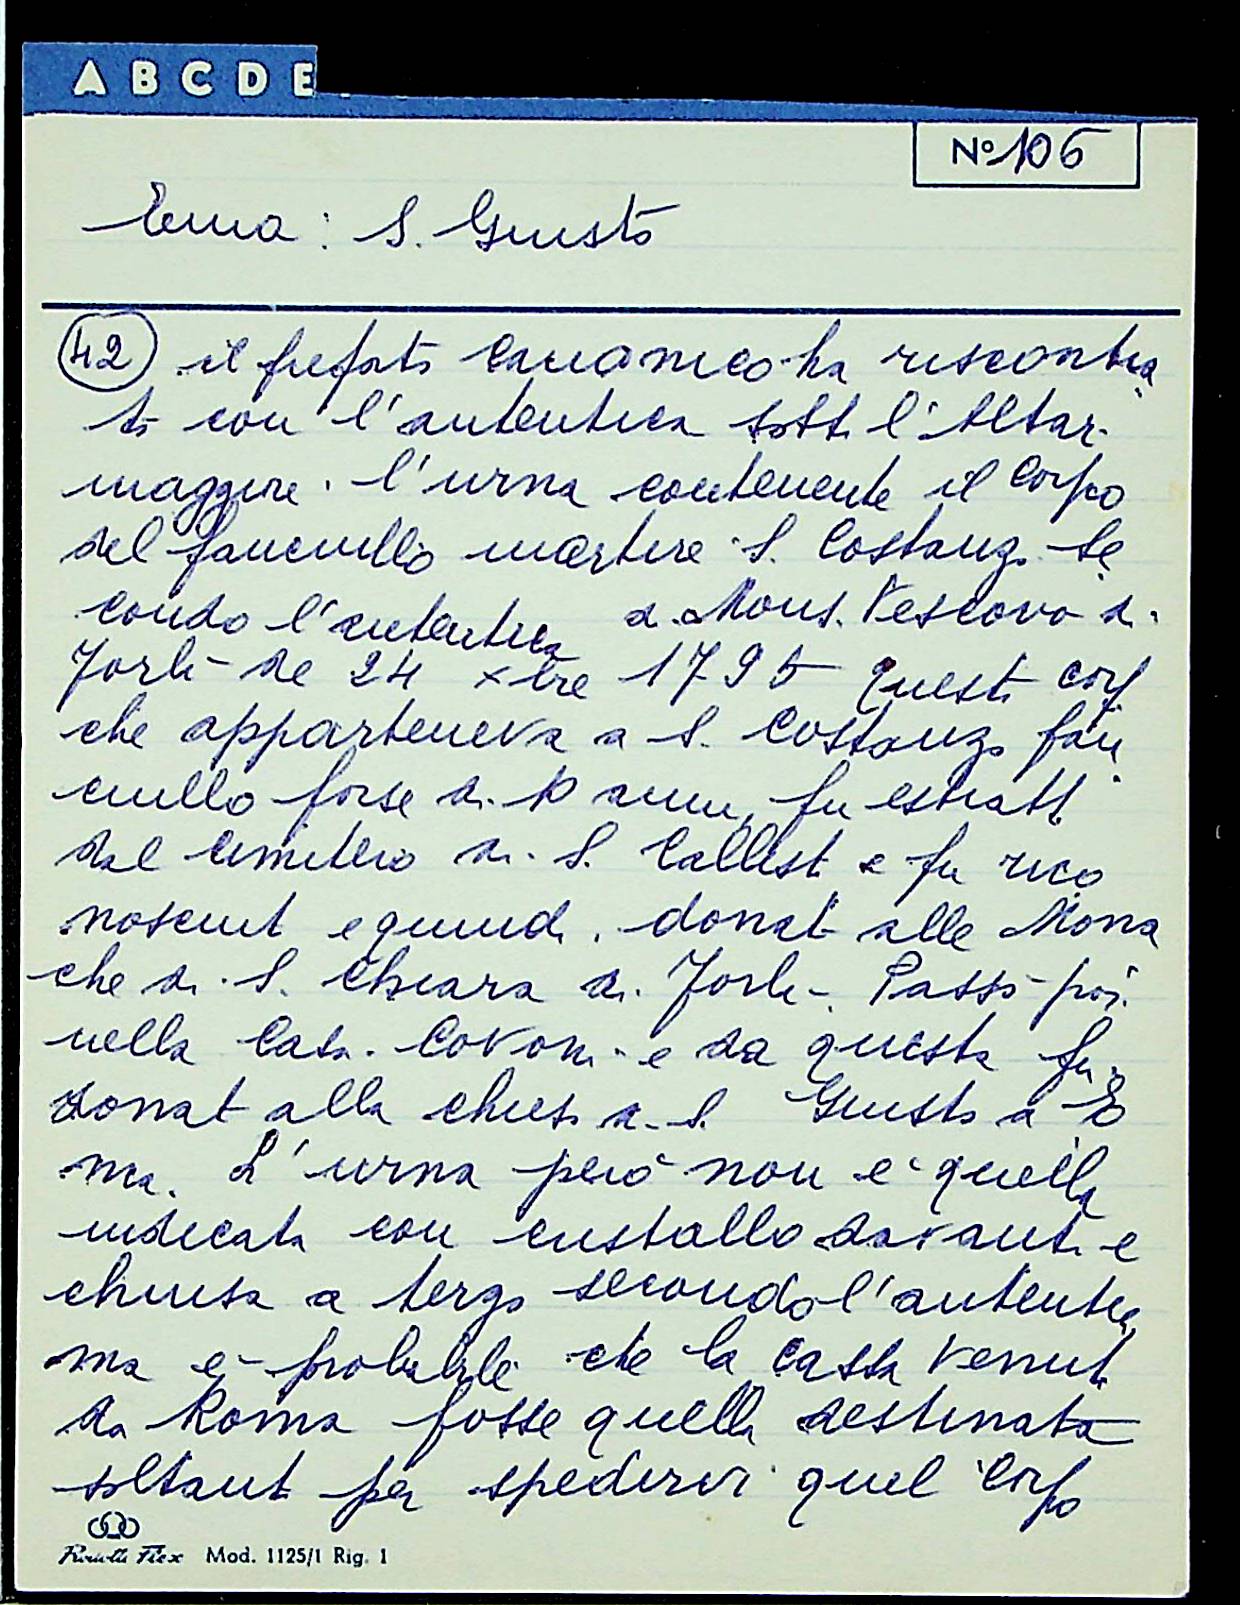 A B C D E
Nº 106
Ema : S. Giusto
42 il prefato canonico ha riscontra
to con l'autentica sotto l'Altar
maggiore l'urna contenente il corpo
del fanciullo martire S. Costanzo Se
condo l'autentica di Mons. Vescovo di
Forlì de 24 xbre 1795 questo corpo
che apparteneva a S. Costanzo fan
ciullo forse di 10 anni, fu estratto
dal cimitero di S. Callisto e fu rico
nosciuto e quindi donato alle Mona
che di S. Chiara di Forlì. Passò poi
nella Casa Covoni e da questa fu
donato alla chiesa di S. Giusto a E
ma. L'urna però non è quella
indicata con cristallo davanti e
chiusa a tergo secondo l'autentica
ma è probabile che la cassa venuta
da Roma fosse quella destinata
soltanto per spedirvi quel corpo
Mod. 1125/1 Rig. 1